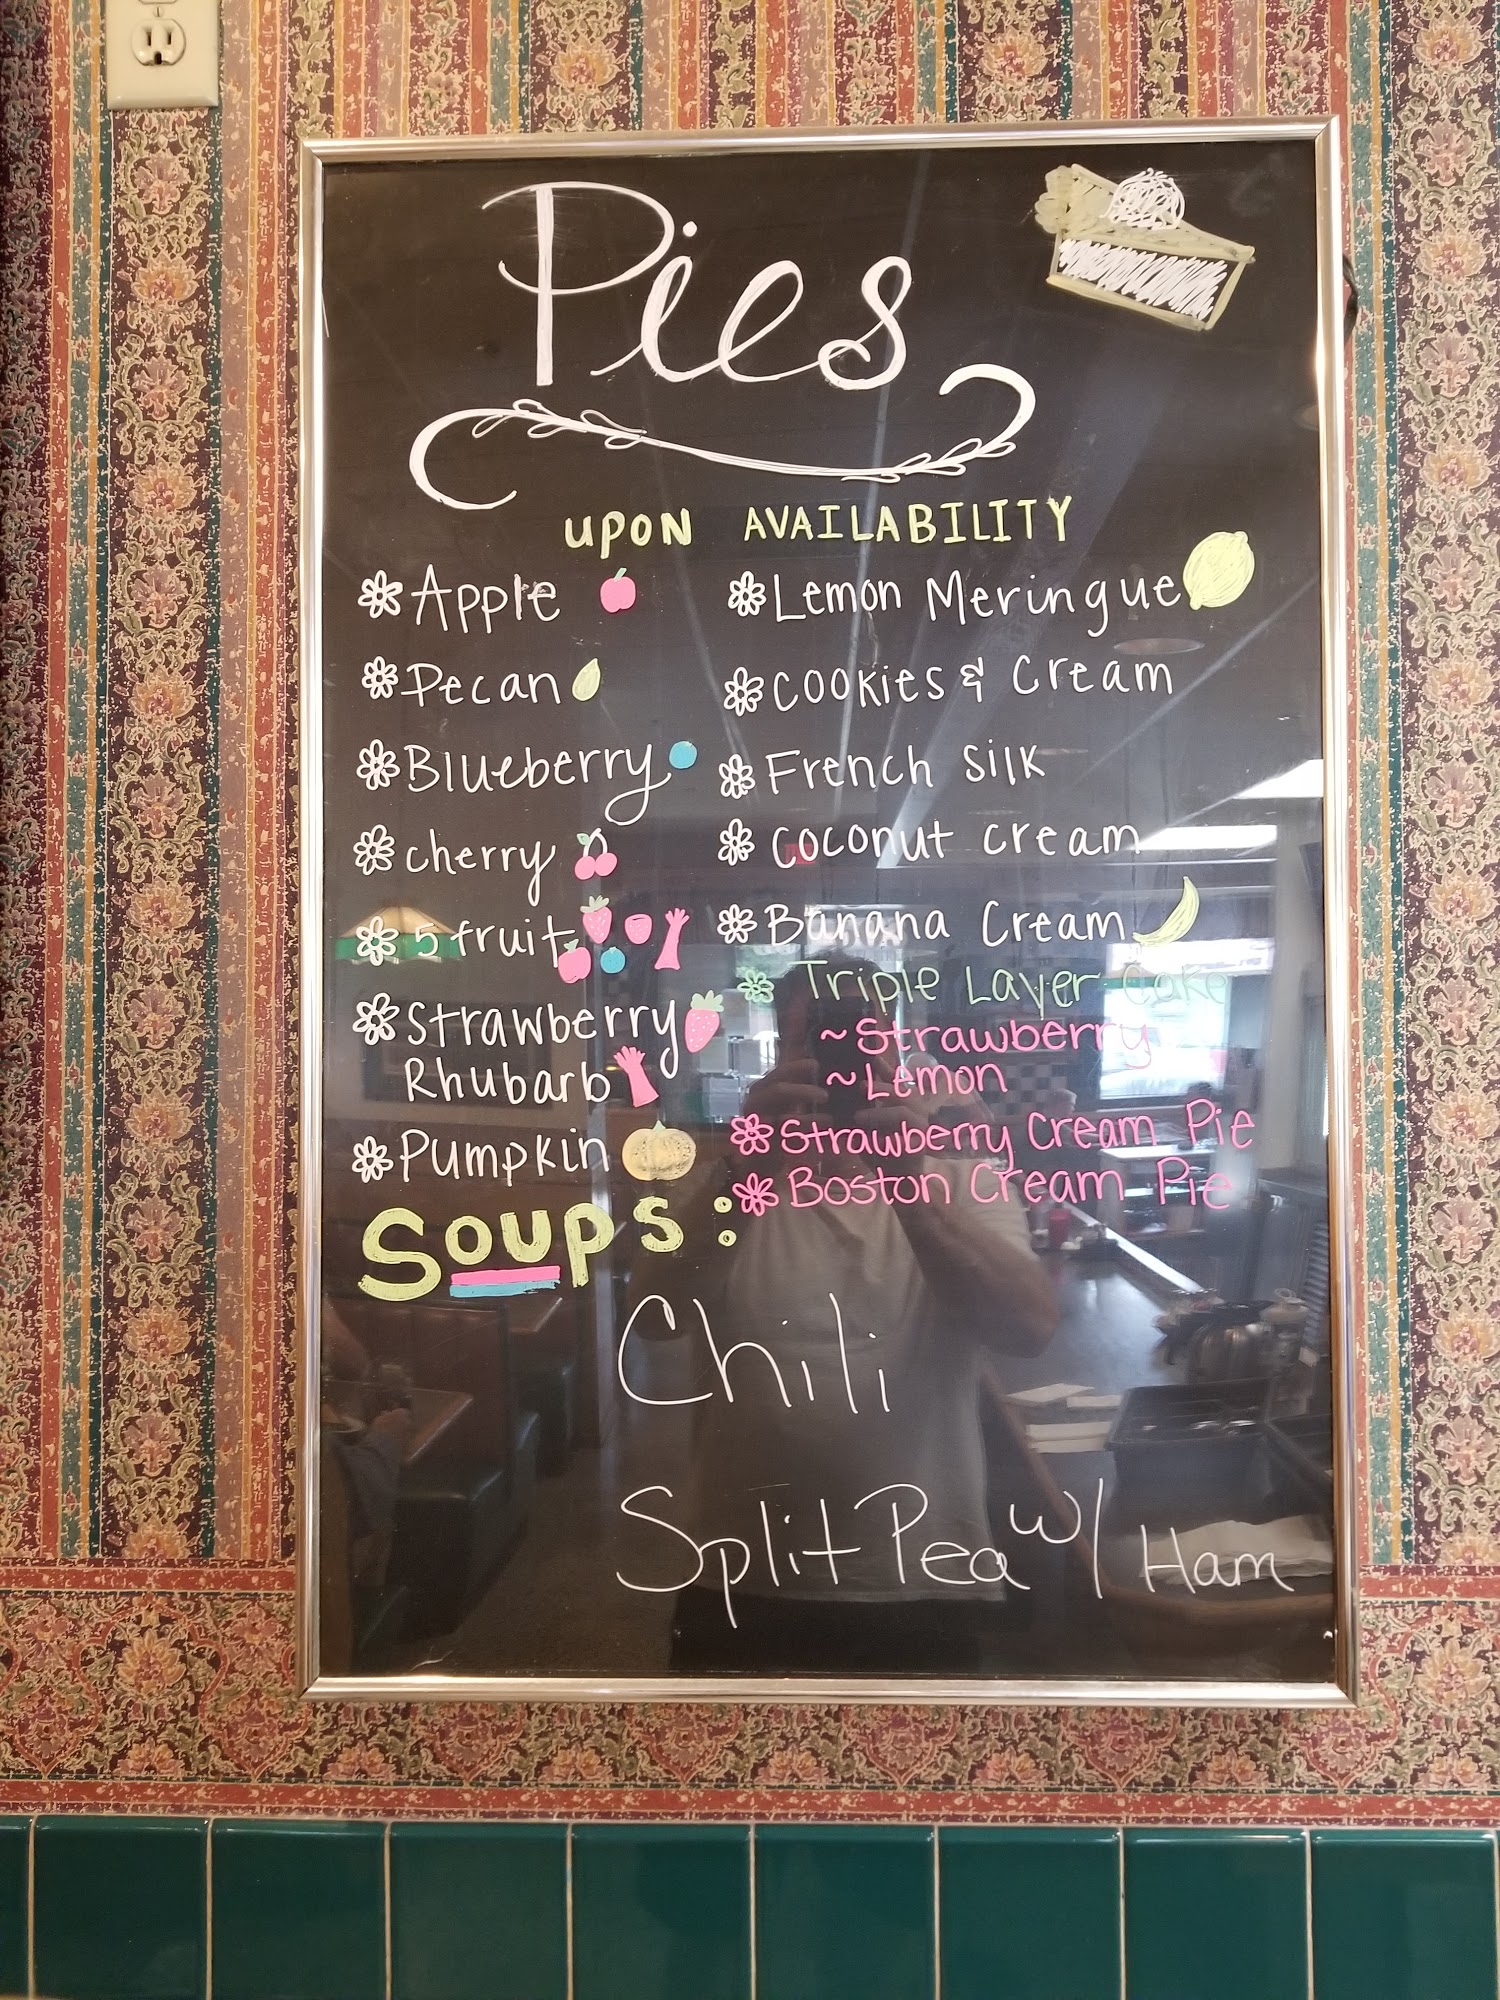 Pies
UPON AVAILABILITY
Apple
Pecan
Blueberry
cherry
5 fruit
Strawberry
Rhubarb
Pumpkin
Lemon Meringue
Cookies & Cream
French Silk
Coconut cream
Banana Cream
Triple Layer Cake
~Strawberry
~Lemon
Strawberry Cream Pie
Boston Cream Pie
Soups:
Chili
Split Pea w/ Ham